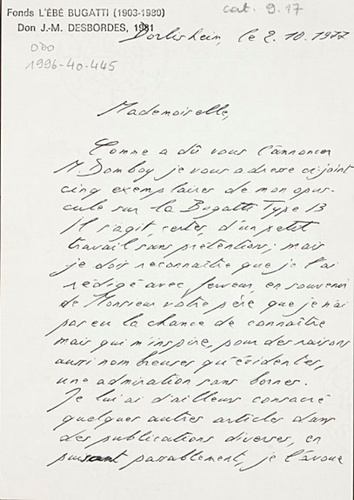 Fonds L'ÉBÉ BUGATTI (1903-1980)
Don J.-M. DESBORDES, 1981
ODO
1996-40-445
cat. 9.17
Dorlisheim, le 2.10.1977
Mademoiselle,
Comme a dû vous l'annoncer
M. Domboy je vous adresse ci-joint
cinq exemplaires de mon opus-
cule sur la Bugatti Type 13
Il s'agit, certes, d'un petit
travail sans prétentions; mais
je dois reconnaître que je l'ai
rédigé avec ferveur, en souvenir
de Monsieur votre père que je n'ai
pas eu la chance de connaître
mais qui m'inspire, pour des raisons
aussi nombreuses qu'évidentes,
une admiration sans bornes.
Je lui ai d'ailleurs consacré
quelques autres articles dans
des publications diverses, en
puisant passablement, je l'avoue